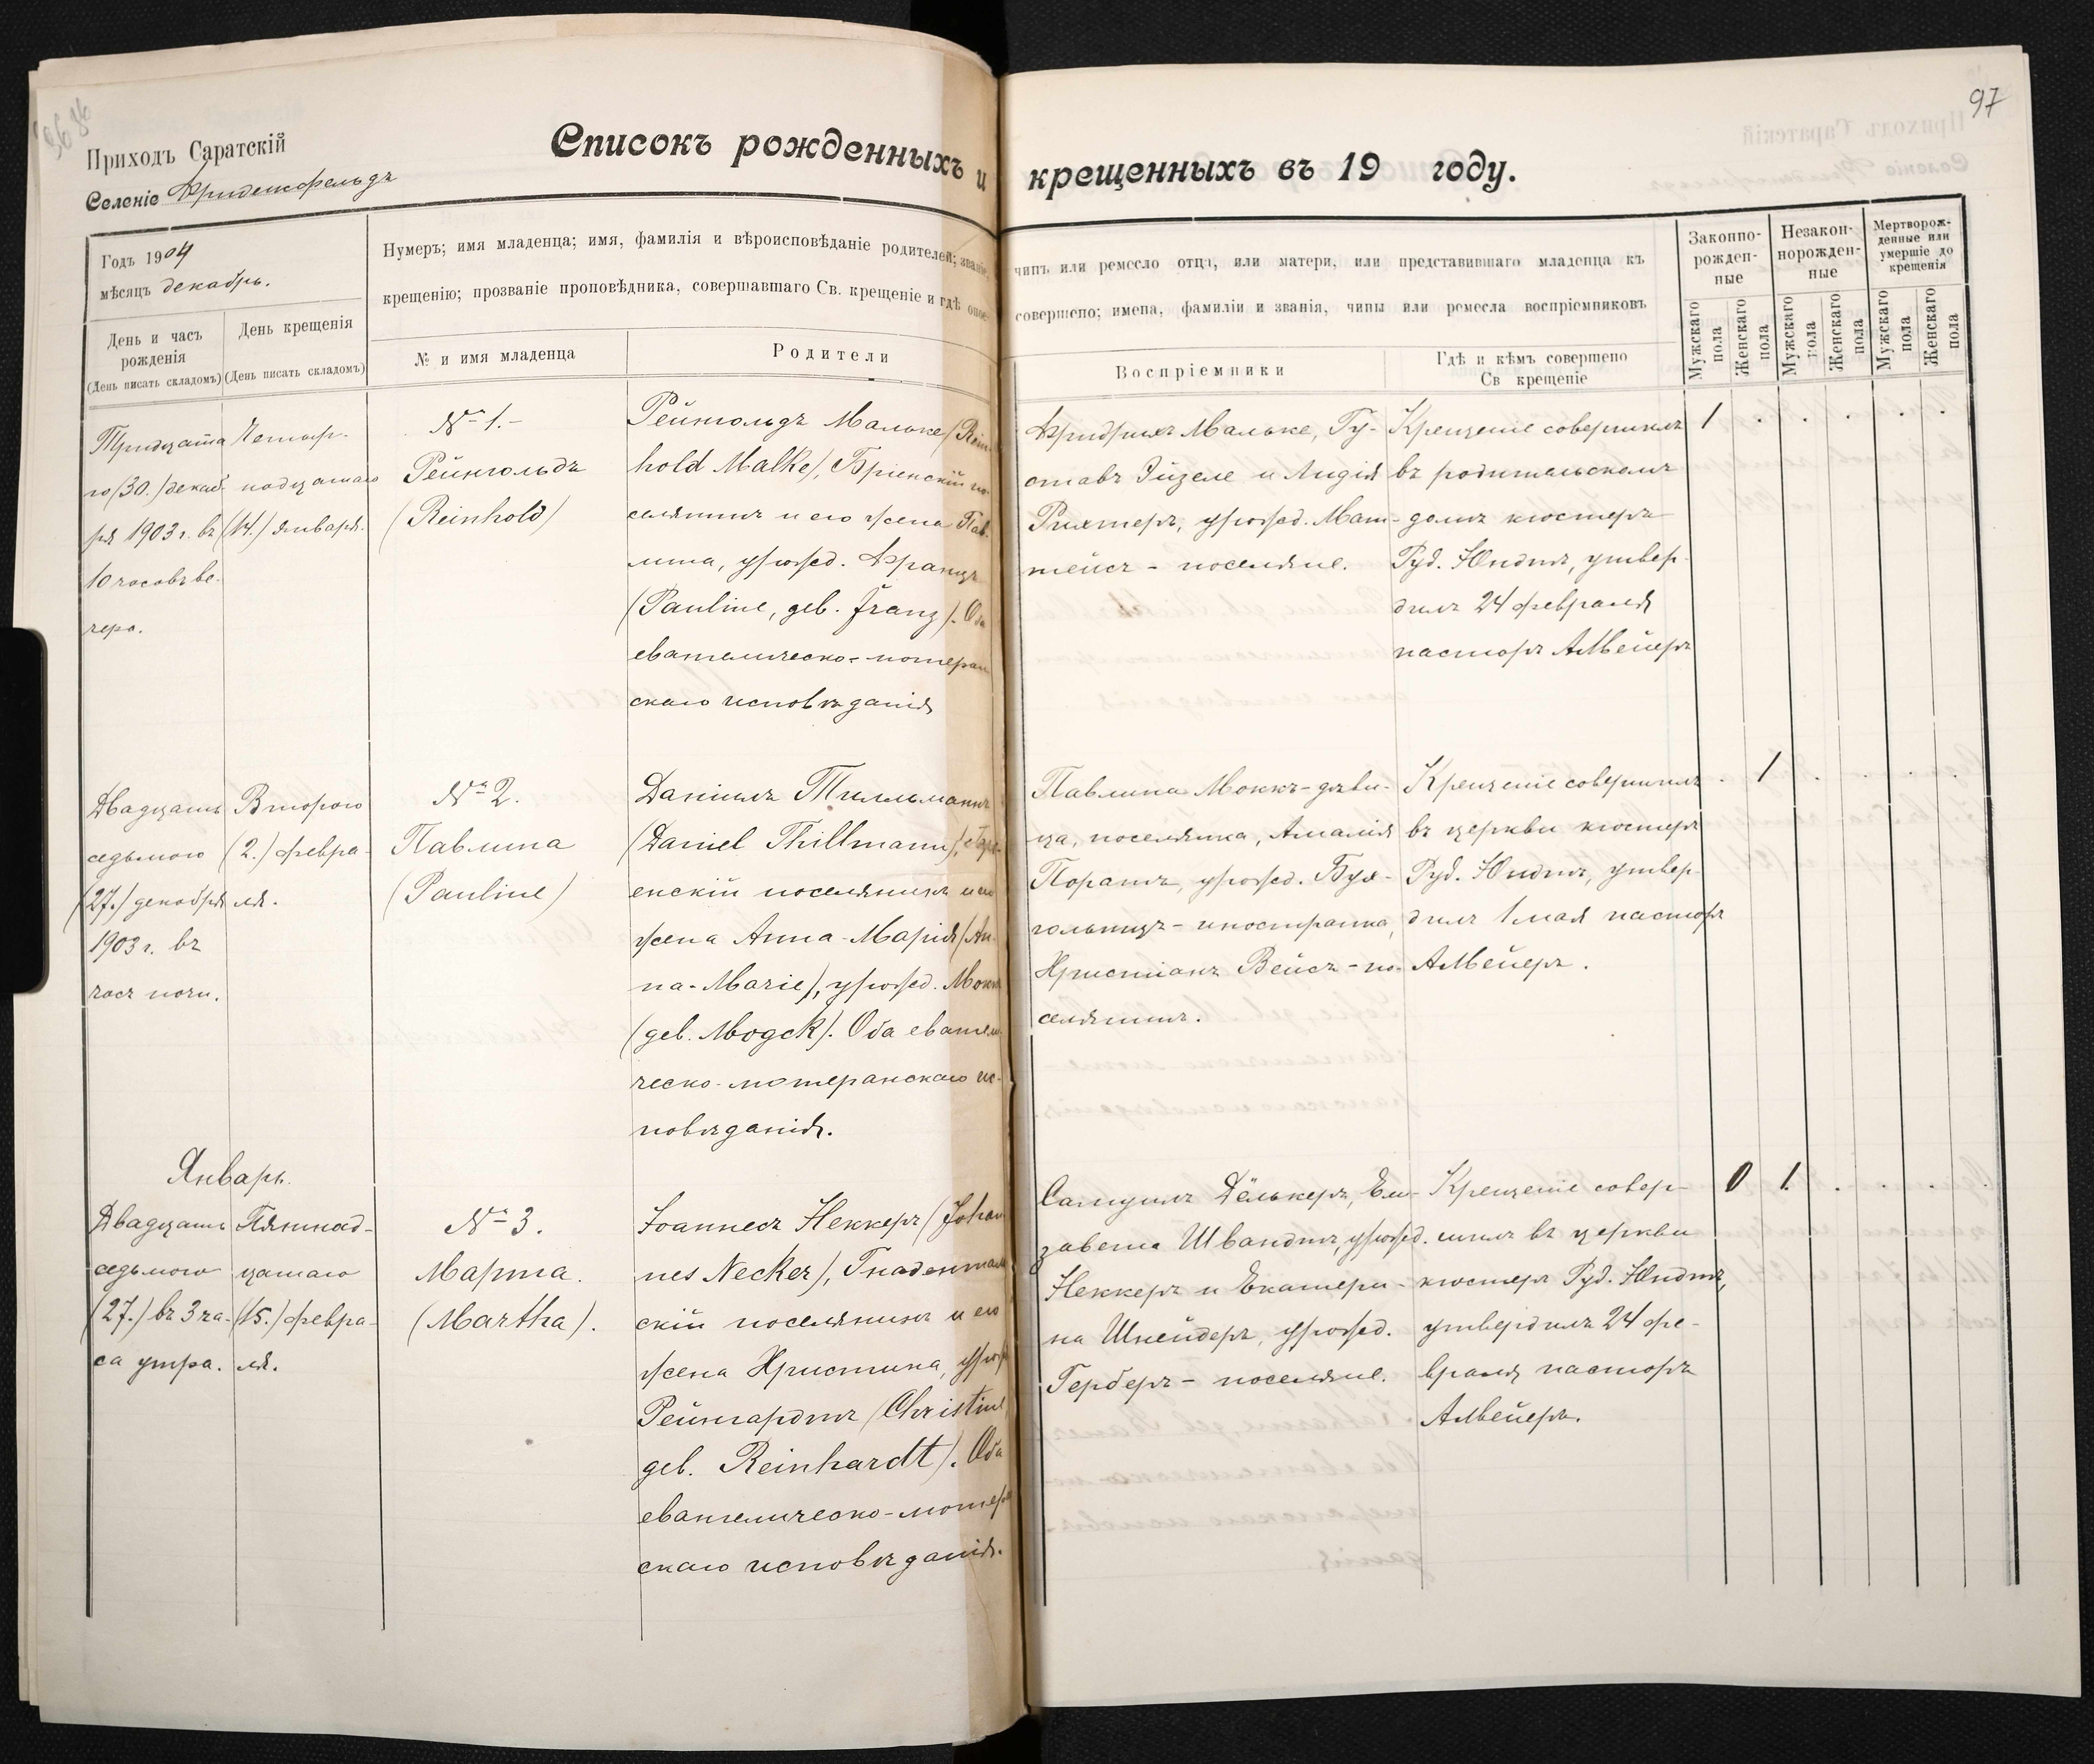 97
Приходъ Саратскій
Селеніе Фриденсфельдъ
Списокъ рожденныхъ и крещенныхъ въ 19 году.
Годъ 1904
мѣсяцъ декабрь.
День и часъ
рожденія
(День писать складомъ)
День крещенія
(День писать складомъ)
Нумеръ; имя младенца; имя, фамилія и вѣроисповѣданіе родителей; званіе,
крещенію; прозваніе проповѣдника, совершавшаго Св. крещеніе и гдѣ оное
№ и имя младенца
Родители
чинъ или ремесло отца, или матери, или представившаго младенца къ
совершено; имена, фамиліи и званія, чины или ремесла воспріемниковъ
Воспріемники
Гдѣ и кѣмъ совершено
Св крещеніе
Законно-
рожден-
ные
Незакон-
норожден-
ные
Мертворож-
денные или
умершіе до
крещенія
Мужскаго
пола
Женскаго
пола
Мужскаго
пола
Женскаго
пола
Мужскаго
пола
Женскаго
пола
Тридцата
го (30.) декаб-
ря 1903 г. въ
10 часовъ ве-
чера.
Четыр-
надцатаго
(14.) января.
№ 1.-
Рейнгольдъ
(Reinhold)
Рейнгольдъ Мальке (Rein-
hold Malke), Бріенскій по-
селянинъ и его жена Пав-
лина, урожд. Францъ
(Pauline, geb. Franz). Оба
евангелическо-лютеран
скаго исповѣданія
Фридрихъ Мальке, Гу-
ставъ Эйзеле и Лидія
Рихтеръ, урожд. Мат-
тейсъ - поселяне.
Крещеніе совершилъ
въ родительскомъ
домѣ кюстеръ
Руд. Юндтъ, утвер-
дилъ 24 февраля
пасторъ А. Мейеръ
1
Двадцать
седьмого
(27.) декабря
1903 г. въ
часъ ночи.
Второго
(2.) февра-
ля.
№ 2.
Павлина
(Pauline)
Даніилъ Тилльманнъ
(Daniel Thillmann),
енскій поселянинъ и его
жена Анна-Марія (An-
na-Marie), урожд. Моккъ
(geb. Mogck). Оба евангели
ческо-лютеранскаго ис-
повѣданія.
Павлина Моккъ - дѣви-
ца, поселянка, Амалія
Поратъ, урожд. Бух-
гольцъ - иностранка,
Христіанъ Вейсъ - по-
селянинъ.
Крещеніе совершилъ
въ церкви кюстеръ
Руд. Юндтъ, утвер-
дилъ 1 мая пасторъ
А. Мейеръ.
1
Январь.
Двадцать
седьмого
(27.) въ 3 ча-
са утра.
Пятнад-
цатаго
(15.) февра-
ля.
№ 3.
Марта.
(Martha).
Іоаннесъ Неккеръ (Johan
nes Necker), Гнадентал
скій поселянинъ и его
жена Христина, урож
Рейнгардтъ (Christine
geb. Reinhardt). Оба
евангелическо-лютера
скаго исповѣданія.
Самуилъ Дёлькеръ, Ели-
завета Швандтъ, урожд.
Неккеръ и Екатери-
на Шнейдеръ, урожд.
Герберъ - поселяне.
Крещеніе совер-
шилъ въ церкви
кюстеръ Руд. Юндтъ,
утвердилъ 24 фе-
враля пасторъ
А. Мейеръ.
0 1.